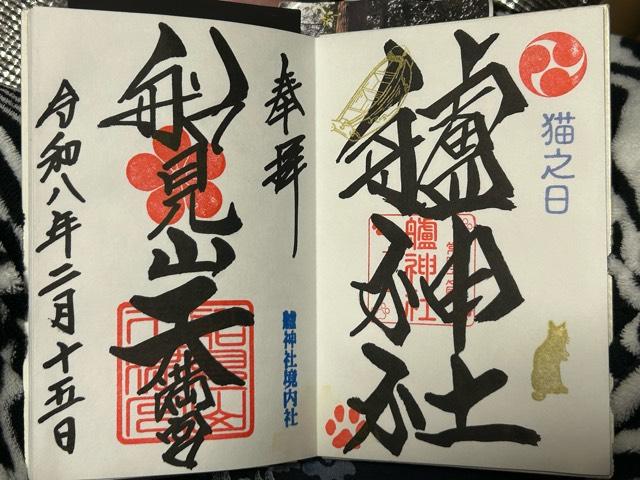 猫之日
艫神社
艫神社
奉拝
艫神社境内社
船見山天満宮
令和八年二月十五日